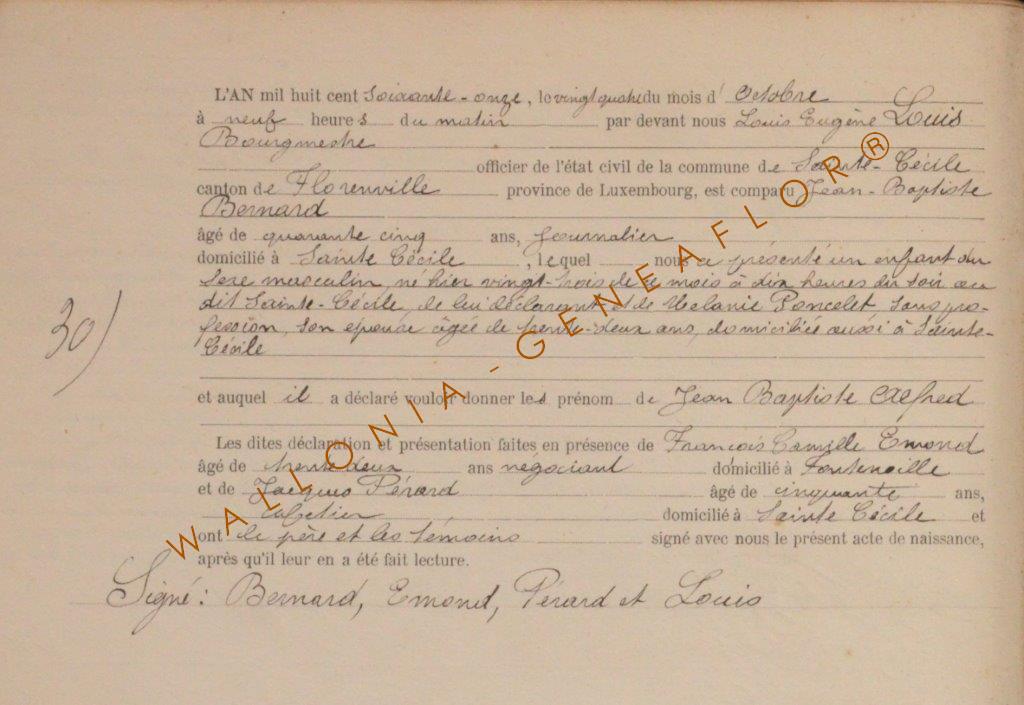 L'AN mil huit cent soixante-onze, le vingt quatre du mois d' Octobre
à neuf heures du matin par devant nous Louis Eugène Louis
Bourgmestre
officier de l'état civil de la commune de Sainte-Cécile
canton de Florenville province de Luxembourg, est comparu Jean-Baptiste
Bernard
âgé de quarante cinq ans, journalier
domicilié à Sainte Cécile, lequel nous a présenté un enfant du
sexe masculin, né hier vingt-trois de ce mois à dix heures du soir au
dit Sainte-Cécile, de lui déclarant et de Mélanie Poncelet sans pro-
fession, son epouse âgée de trente-deux ans, domiciliée aussi à Sainte-
Cécile
30)
et auquel il a déclaré vouloir donner les prénom de Jean Baptiste Alfred
Les dites déclaration et présentation faites en présence de François Camille Emond
âgé de trente deux ans négociant domicilié à Fontenoille
et de Jacques Pérard âgé de cinquante ans,
cafetier domicilié à Sainte Cécile et
ont le père et les témoins signé avec nous le présent acte de naissance,
après qu'il leur en a été fait lecture.
Signé: Bernard, Emond, Pérard et Louis
WALLONIA-GENEAFLOR®